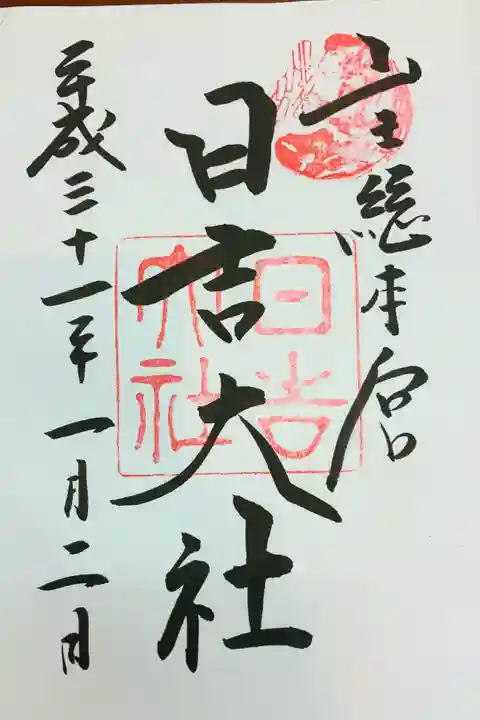 山王総本宮
日吉大社
日吉大社
平成三十一年一月二日